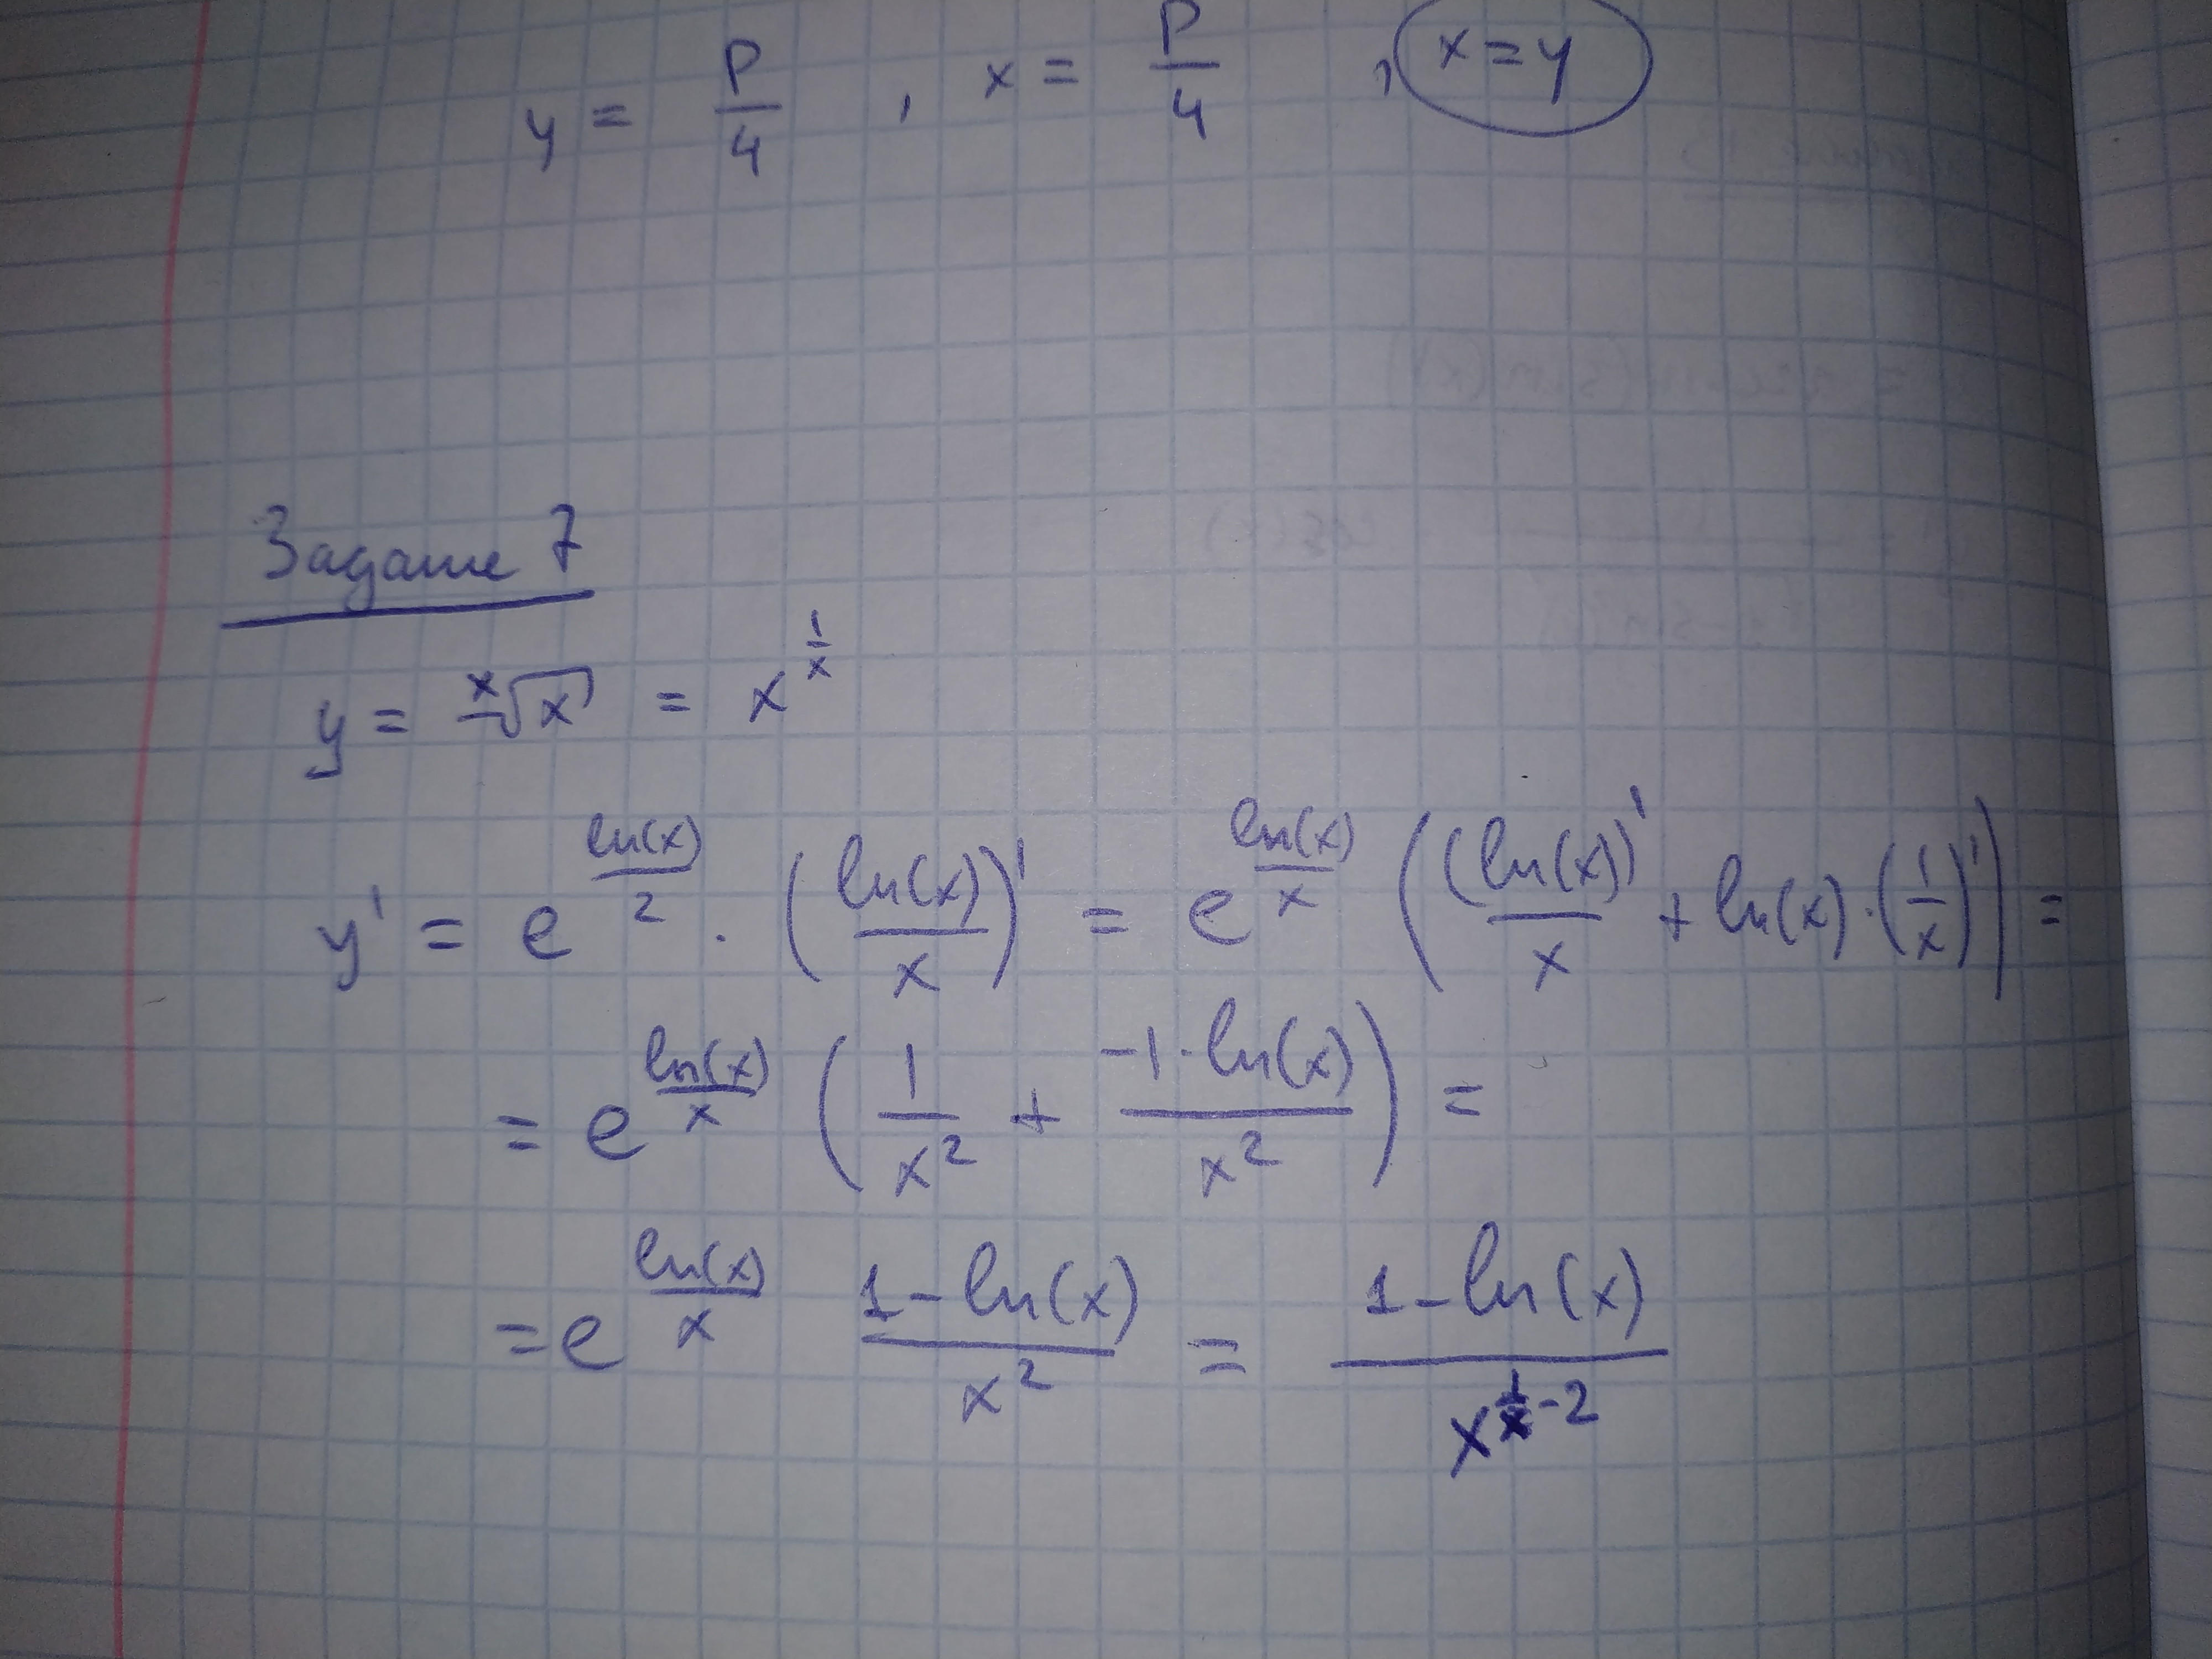 y = P/4 , x = P/4 , x = y
Задание 7
y = ˣ√x = x^(1/x)
y' = e^(ln(x)/2) · (ln(x)/x)' = e^(ln(x)/x) ((ln(x))'/x + ln(x) · (1/x)') =
= e^(ln(x)/x) (1/x² + -1·ln(x)/x²) =
= e^(ln(x)/x) 1-ln(x)/x² = 1-ln(x)/x^(1/x-2)